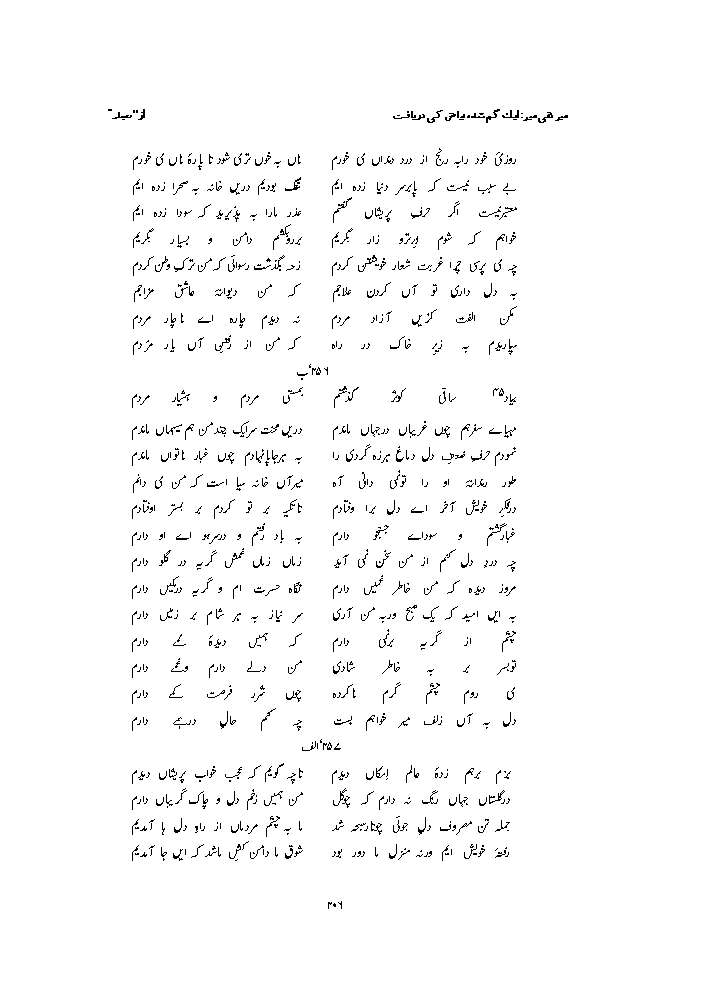 میر تقی میر: ایک گم شدہ بیاض کی دریافت از "معیار"
روزیِٔ خود رابہ رنج از درد دنداں می خورم ناں بہ خوں تری شود تا پارۂ ناں می خورم
بے سبب نیست کہ پابرسر دنیا زدہ ایم تنگ بودیم دریں خانہ بہ صحرا زدہ ایم
معتبر نیست اگر حرف پریشاں گفتم عذر مارا بہ پذیرید کہ سودا زدہ ایم
خواہم کہ شوم ابرتر و زار بگریم بررو کشم دامن و بسیار بگریم
چہ می پرسی چرا غربت شعار خویشتن کردم زحد بگذشت رسوائی کہ من ترکِ وطن کردم
بہ دل داری تو آں کردن علاجم کہ من دیوانۂ عاشق مزاجم
مکن الفت کزیں آزاد مردم نہ دیدم چارہ اے ناچار مردم
سپاریدم بہ زیرِ خاک در راہ کہ من از رفتنِ آں یار مردم
۲۵۶/ب
بیاد۴۵ ساقی کوثر گذشتم بمستی مردم و ہشیار مردم
مہیاے سفرہم چوں غریباں درجہاں ماندم دریں محنت سرایک چند من ہم میہماں ماندم
نمودم حرفِ ضعفِ دل دماغِ ہرزہ گردی را بہ ہرجا پا نہادم چوں غبار ناتواں ماندم
طورِ رندانۂ او را تو نمی دانی آہ میرآں خانہ سیا است کہ من می دانم
درفکرِ خویش آخر اے دل برا وفتادم تا تکیہ بر تو کردم بر بستر اوفتادم
غبارگشتم و سوداے جستجو دارم بہ باد رفتم و درسرہو اے او دارم
چہ دردِ دل کنم از من سخن نمی آید زماں زماں غمش گریہ در گلو دارم
مروز دیدہ کہ من خاطر غمیں دارم نگاہ حسرت ام و گریہ درکمیں دارم
بہ ایں امید کہ یک صبح وربہ من آری سرِ نیاز بہ ہر شام بر زمیں دارم
چشم از گریہ برنمی دارم کہ ہمیں دیدۂ نمے دارم
توبسر بر بہ خاطر شادی من دلے دارم و غمے دارم
می روم چشم گرم ناکردہ چوں شرر فرصت کمے دارم
دل بہ آں زلف میر خواہم بست چہ کنم حالِ درہمے دارم
۲۵۷/الف
بزم برہم زدۂ عالمِ امکاں دیدم تاچہ گویم کہ عجب خواب پریشاں دیدم
درگلستاں جہاں رنگ نہ دارم کہ چوگل من ہمیں زخم دل و چاک گریباں دارم
جملہ تن مصروف دل جوئی چوتارسبحہ شد تا بہ چشم مردماں از راہِ دل ہا آمدیم
رفتۂ خویش ایم ورنہ منزل ما دور بود شوق ما دامن کشِ ماشد کہ ایں جا آمدیم
۲۰۶